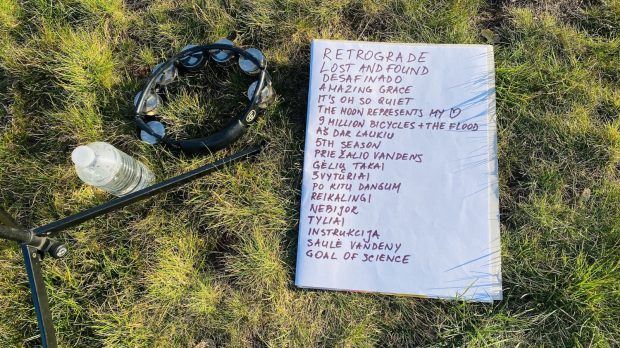 RETROGRADE
LOST AND FOUND
DESAFINADO
AMAZING GRACE
IT'S OH SO QUIET
THE MOON REPRESENTS MY ♡
9 MILLION BICYCLES + THE FLOOD
AŠ DAR LAUKIU
5TH SEASON
PRIE ŽALIO VANDENS
GĖLIŲ TAKAI
ŠVYTURIAI
PO KITU DANGUM
REIKALINGI
NEBIJOK
TYLIAI
INSTRUKCIJA
SAULĖ VANDENY
GOAL OF SCIENCE